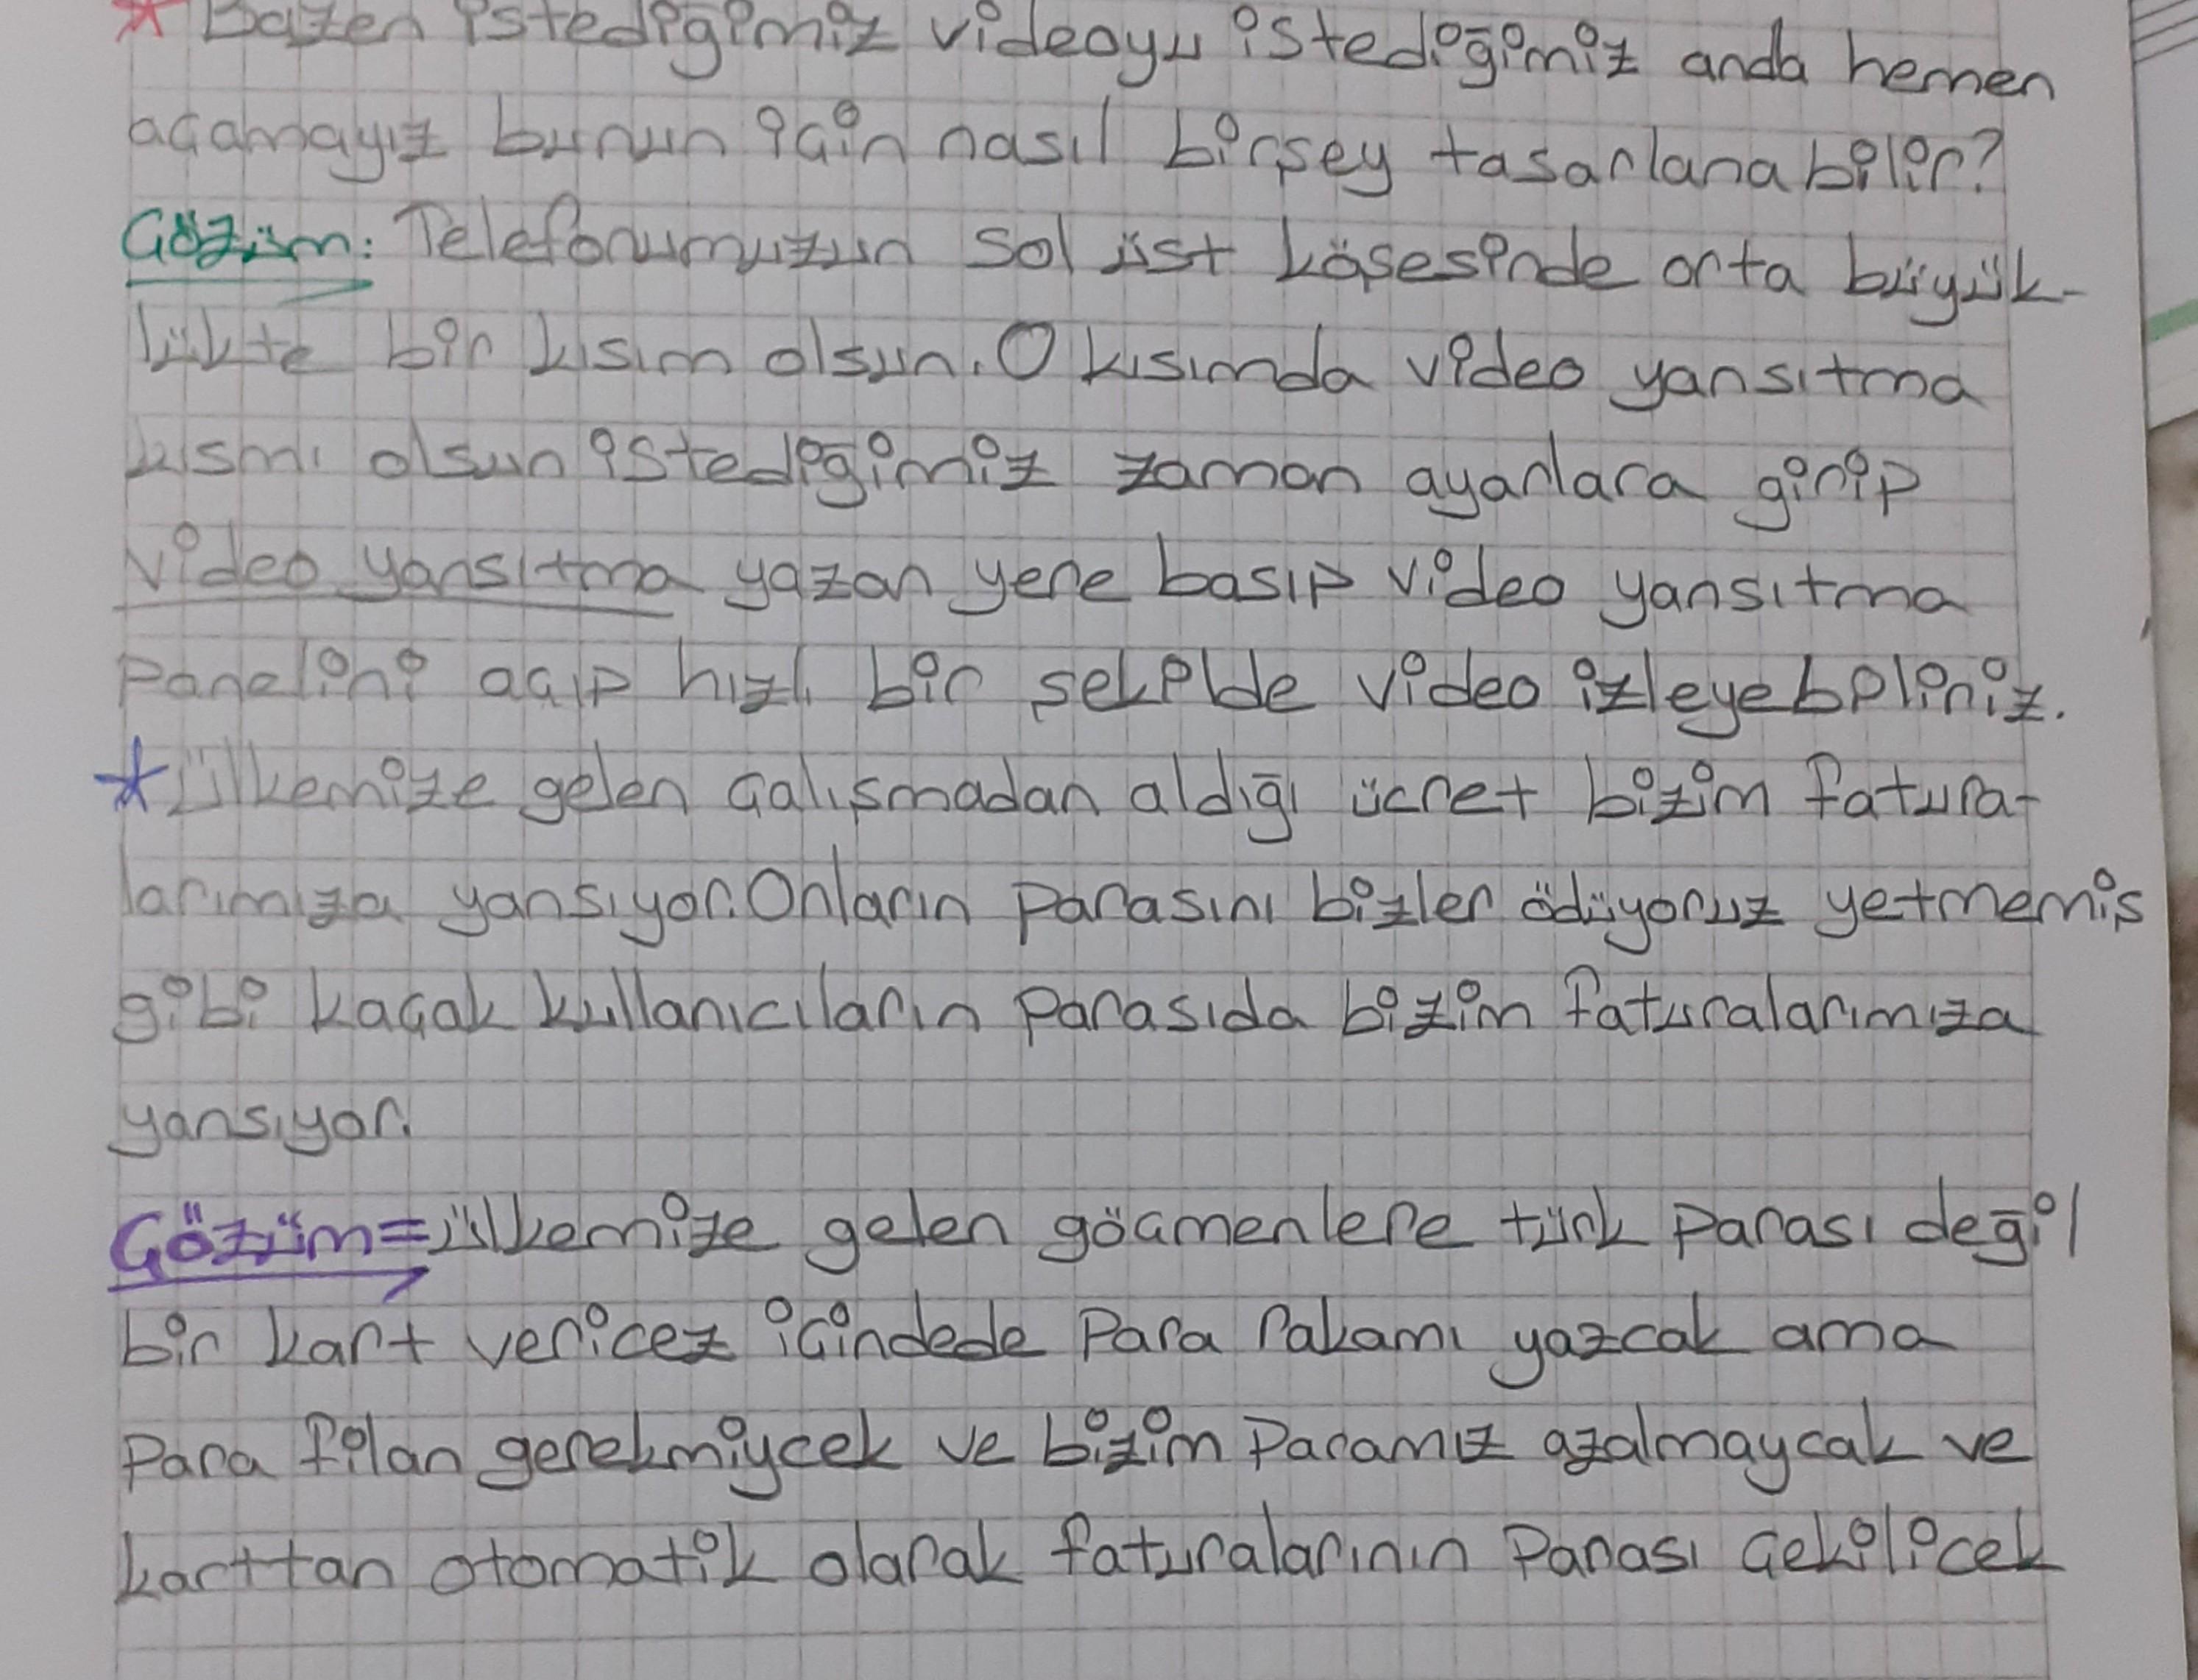 * Bazen istediğimiz videoyu istediğimiz anda hemen
açamayız bunun için nasıl birşey tasarlanabilir?
Çözüm: Telefonumuzun sol üst köşesinde orta büyük-
lükte bir kısım olsun. O kısımda video yansıtma
kısmı olsun istediğimiz zaman ayarlara girip
video yansıtma yazan yere basıp video yansıtma
panelini açıp hızlı bir şekilde video izleyebiliriz.
* Ülkemize gelen çalışmadan aldığı ücret bizim fatura-
larımıza yansıyor. Onların parasını bizler ödüyoruz yetmemiş
gibi kaçak kullanıcıların parasıda bizim faturalarımıza
yansıyor.
Çözüm= ülkemize gelen göçmenlere türk parası değil
bir kart vericez içindede para rakamı yazcak ama
para filan gerekmiycek ve bizim paramız azalmaycak ve
karttan otomatik olarak faturalarının parası çekilicek